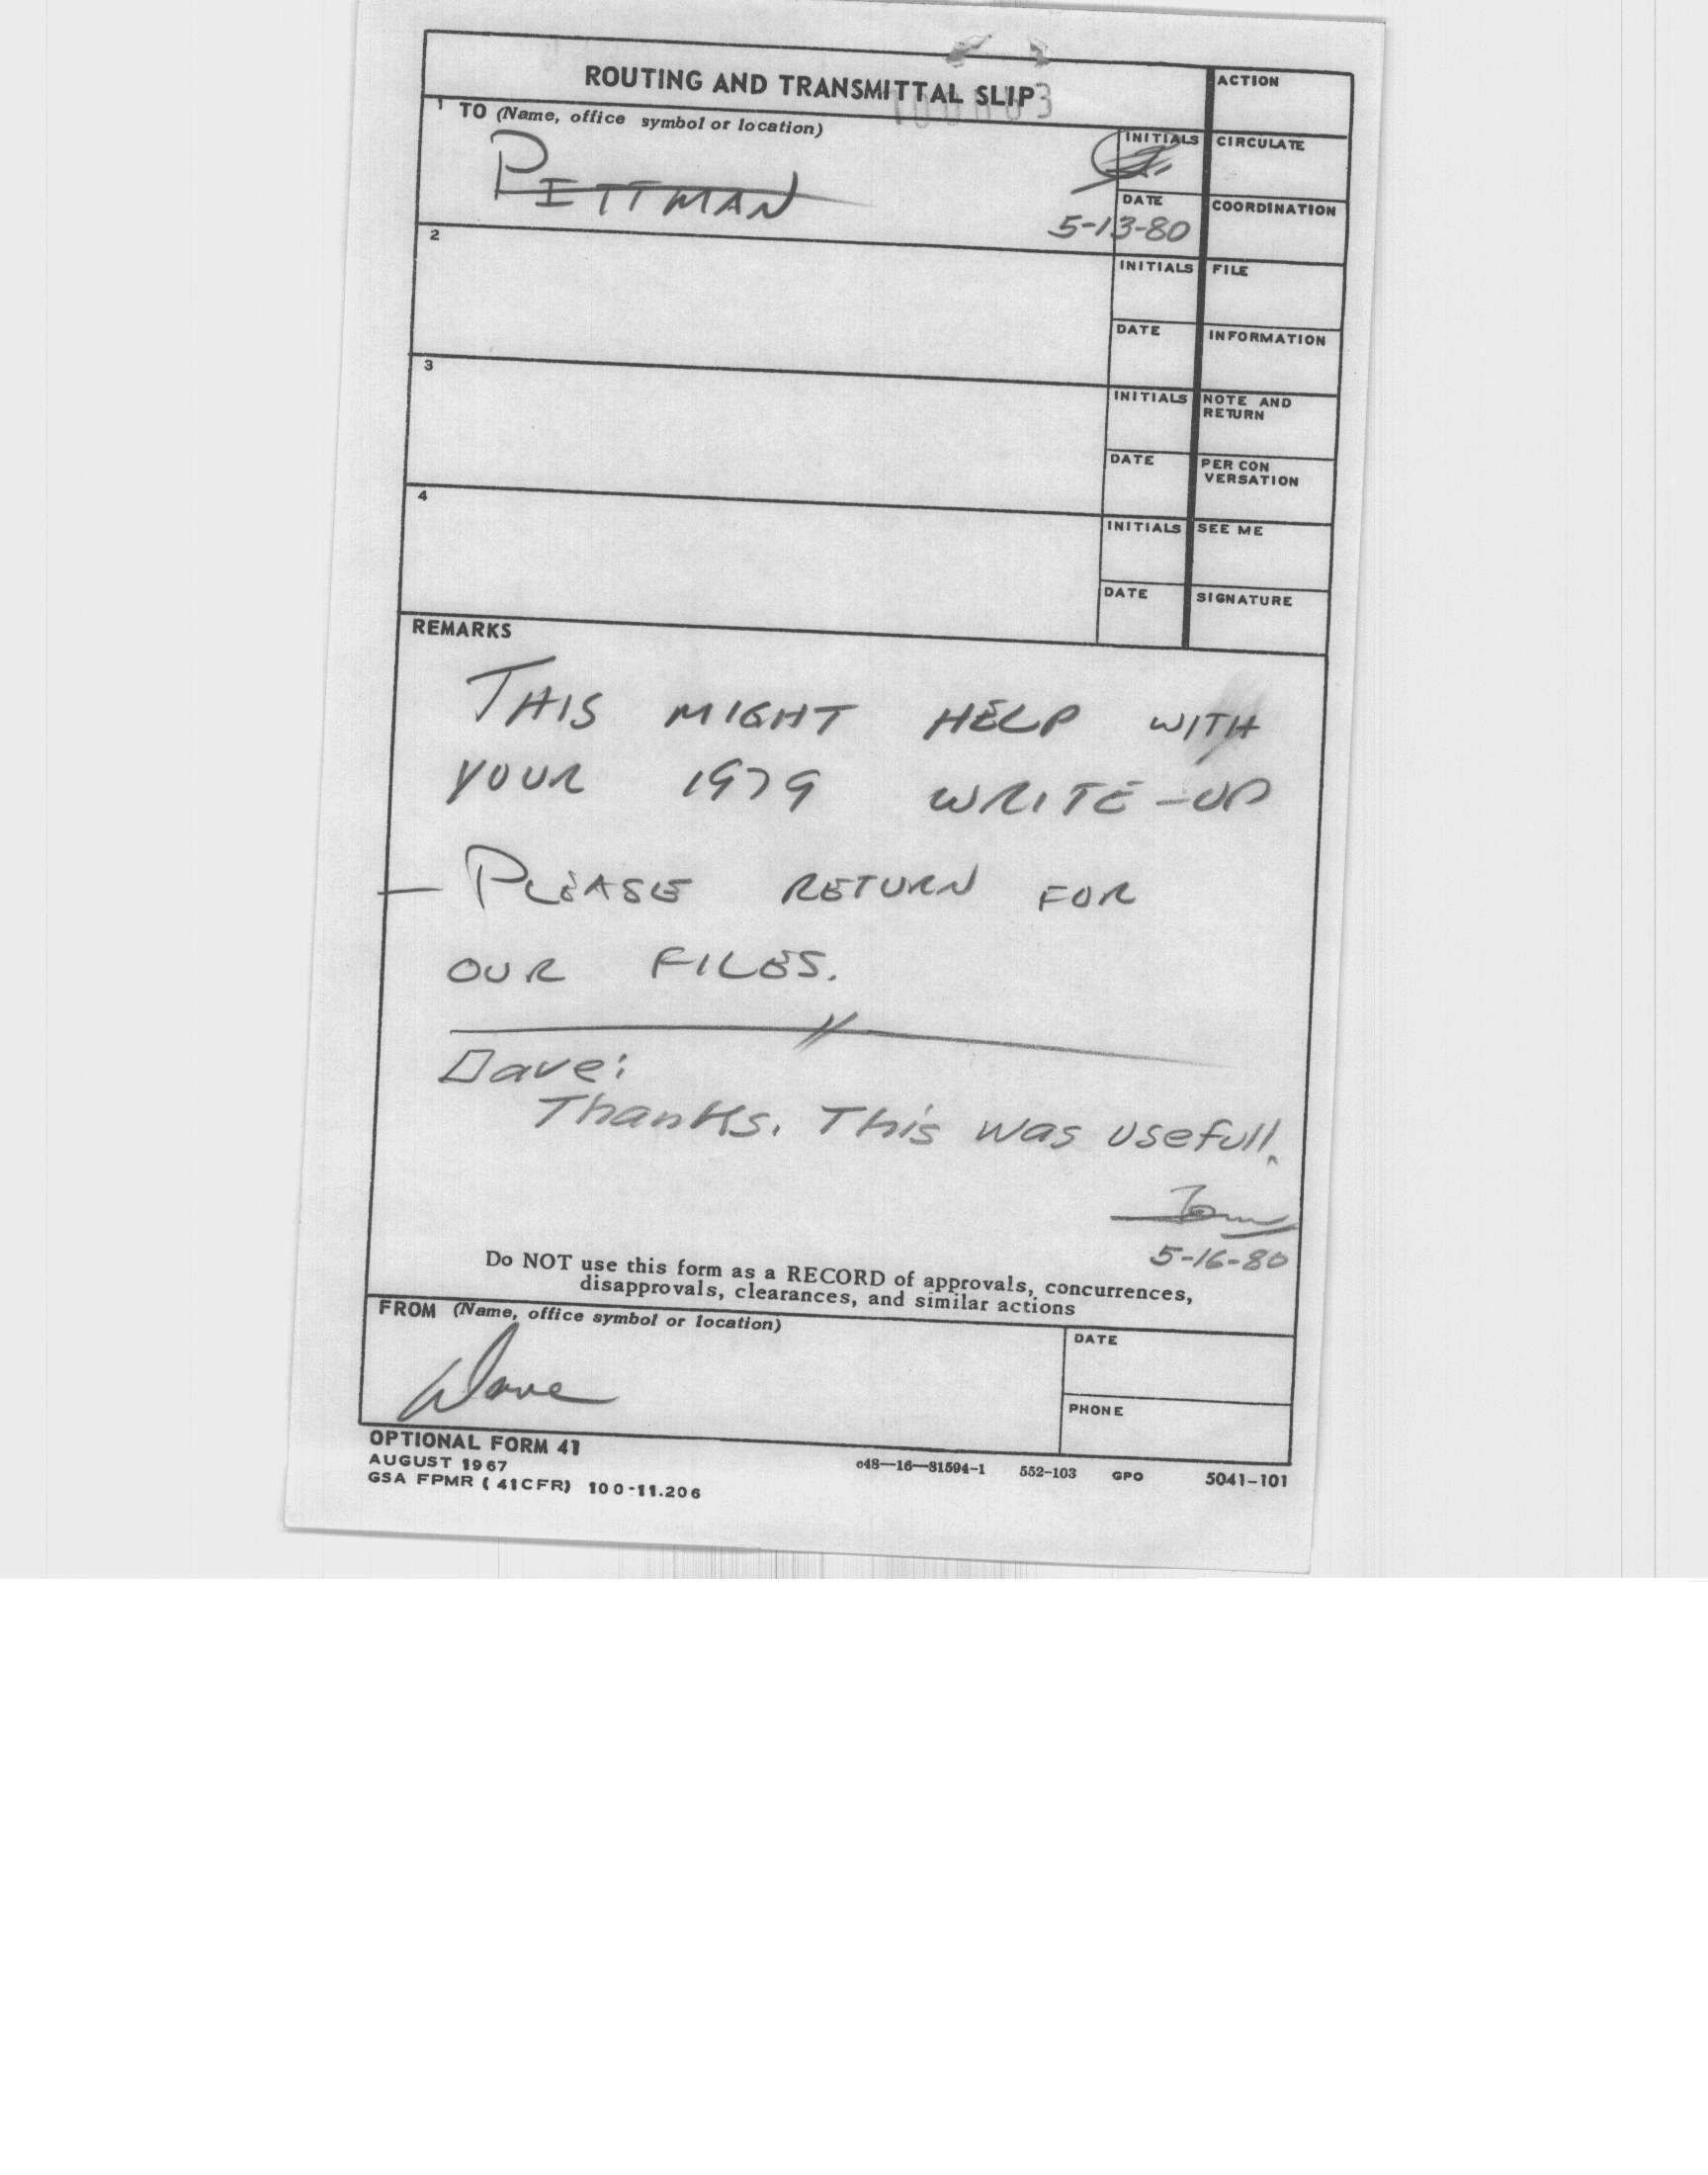 ROUTING AND TRANSMITTAL SLIP
ACTION
1 TO (Name, office symbol or location)
PITTMAN
INITIALS
CIRCULATE
DATE
5-13-80
COORDINATION
2
INITIALS
FILE
DATE
INFORMATION
3
INITIALS
NOTE AND
RETURN
DATE
PER CON
VERSATION
4
INITIALS
SEE ME
DATE
SIGNATURE
REMARKS
THIS MIGHT HELP WITH
YOUR 1979 WRITE-UP
— PLEASE RETURN FOR
OUR FILES.
Dave:
Thanks. This was usefull.
Tom
5-16-80
Do NOT use this form as a RECORD of approvals, concurrences,
disapprovals, clearances, and similar actions
FROM (Name, office symbol or location)
Dave
DATE
PHONE
OPTIONAL FORM 41
AUGUST 1967
GSA FPMR (41CFR) 100-11.206
c48—16—81594-1 552-103 GPO 5041-101